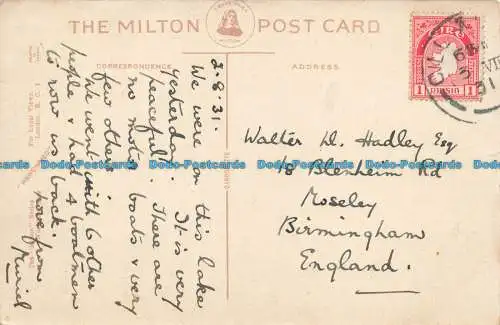 THE MILTON POST CARD
CORRESPONDENCE
ADDRESS
2.8.31.
We were on this lake
yesterday. It is very
peaceful. There are
no motor boats & very
few others.
We went with 6 other
people & had 4 boatmen
to row us back.
Love from
Muriel
Walter D. Hadley Esq
18 Blenheim Rd
Moseley
Birmingham
England.
1 PINGIN 1
31
Dodo-Postcards.com